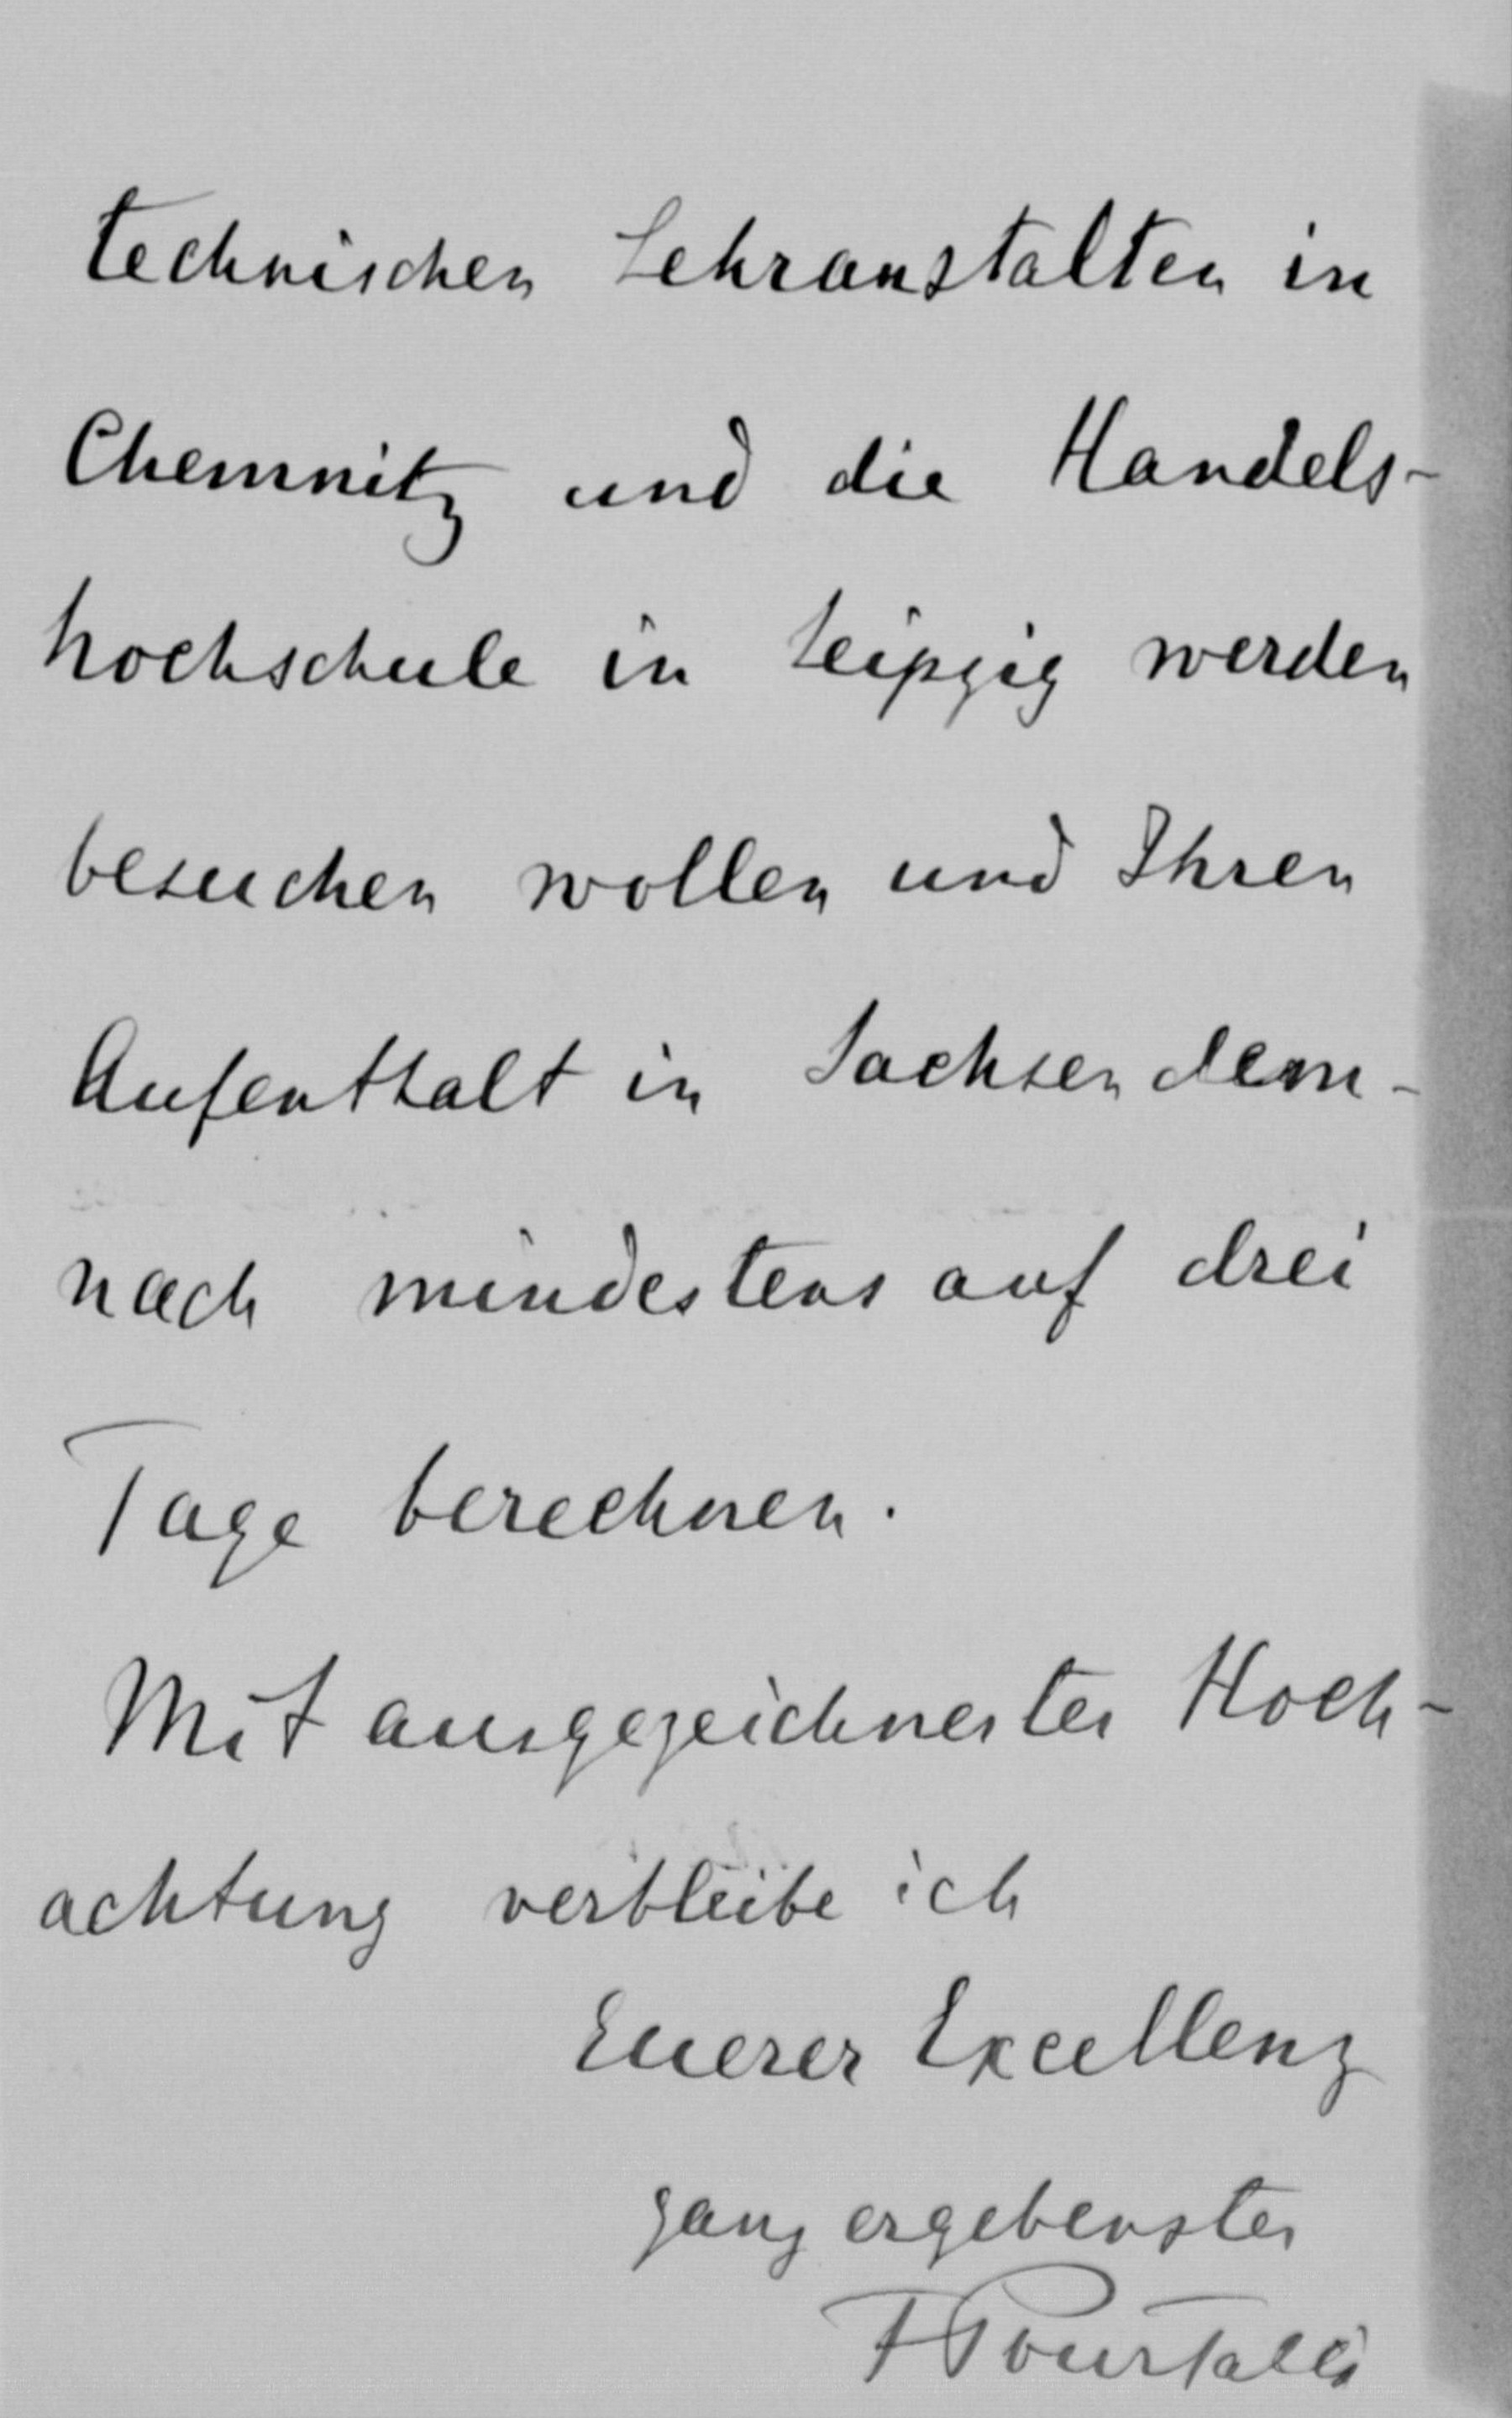 technischen Lehranstalten in
Chemnitz und die Handels-
hochschule in Leipzig werden
besuchen wollen und Ihren
Aufenthalt in Sachsen dem-
nach mindestens auf drei
Tage berechnen.
Mit ausgezeichnester Hoch-
achtung verbleibe ich
Euerer Excellenz
ganz ergebenster
F Pourtalès